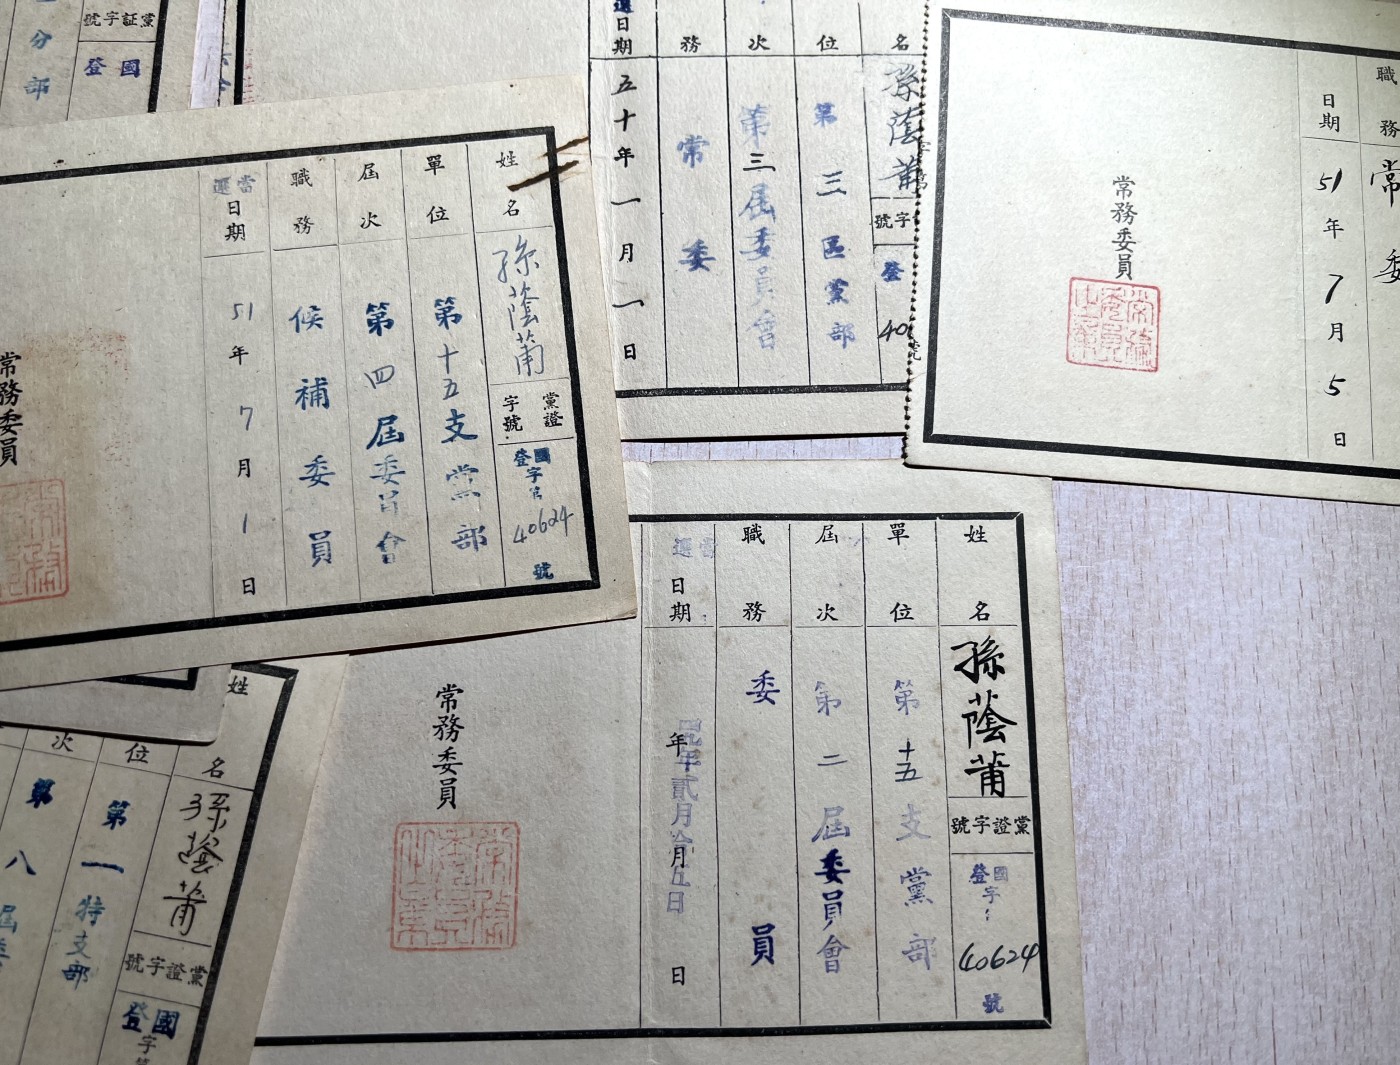 黨証字號
國
登
分部
姓名
孫蔭莆
黨證字號
國登字第
40624
號
單位
第十五支黨部
屆次
第四屆委員會
職務
候補委員
當選日期
51年7月1日
常務委員
名
孫蔭莆
字號
登
40
位
第三區黨部
次
第三屆委員會
務
常委
選日期
五十年一月一日
職務
常委
日期
51年7月5日
常務委員
常務委員之章
姓名
孫蔭莆
黨證字號
國登字
40624
號
單位
第十五支黨部
屆次
第二屆委員會
職務
委員
當選日期
年月日
常務委員
常務委員之章
姓名
孫蔭莆
黨證字號
國登字第
位
第一特支部
次
第八屆委